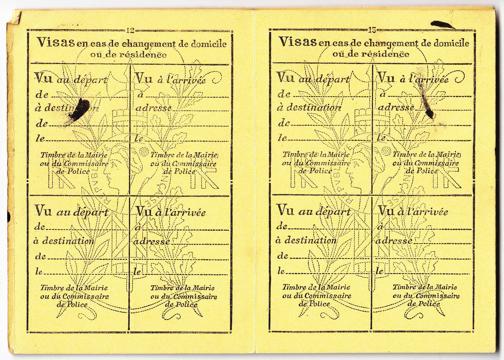 12
Visas en cas de changement de domicile
ou de résidence
Vu au départ
de
à destination
de
le
Timbre de la Mairie
ou du Commissaire
de Police
Vu à l'arrivée
à
adresse
le
Timbre de la Mairie
ou du Commissaire
de Police
Vu au départ
de
à destination
de
le
Timbre de la Mairie
ou du Commissaire
de Police
Vu à l'arrivée
à
adresse
le
Timbre de la Mairie
ou du Commissaire
de Police
13
Visas en cas de changement de domicile
ou de résidence
Vu au départ
de
à destination
de
le
Timbre de la Mairie
ou du Commissaire
de Police
Vu à l'arrivée
à
adresse
le
Timbre de la Mairie
ou du Commissaire
de Police
Vu au départ
de
à destination
de
le
Timbre de la Mairie
ou du Commissaire
de Police
Vu à l'arrivée
à
adresse
le
Timbre de la Mairie
ou du Commissaire
de Police